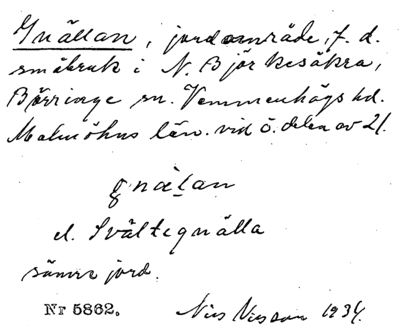 Gnällan, jordområde, f. d.
småbruk i N. Björkesåkra,
Börringe sn. Vemmenhögs hd.
Malmöhus län. vid ö. delen av 21.
gnälan
el. Svältegnälla
sämre jord.
Nr 5862. Nils Nilsson 1934.